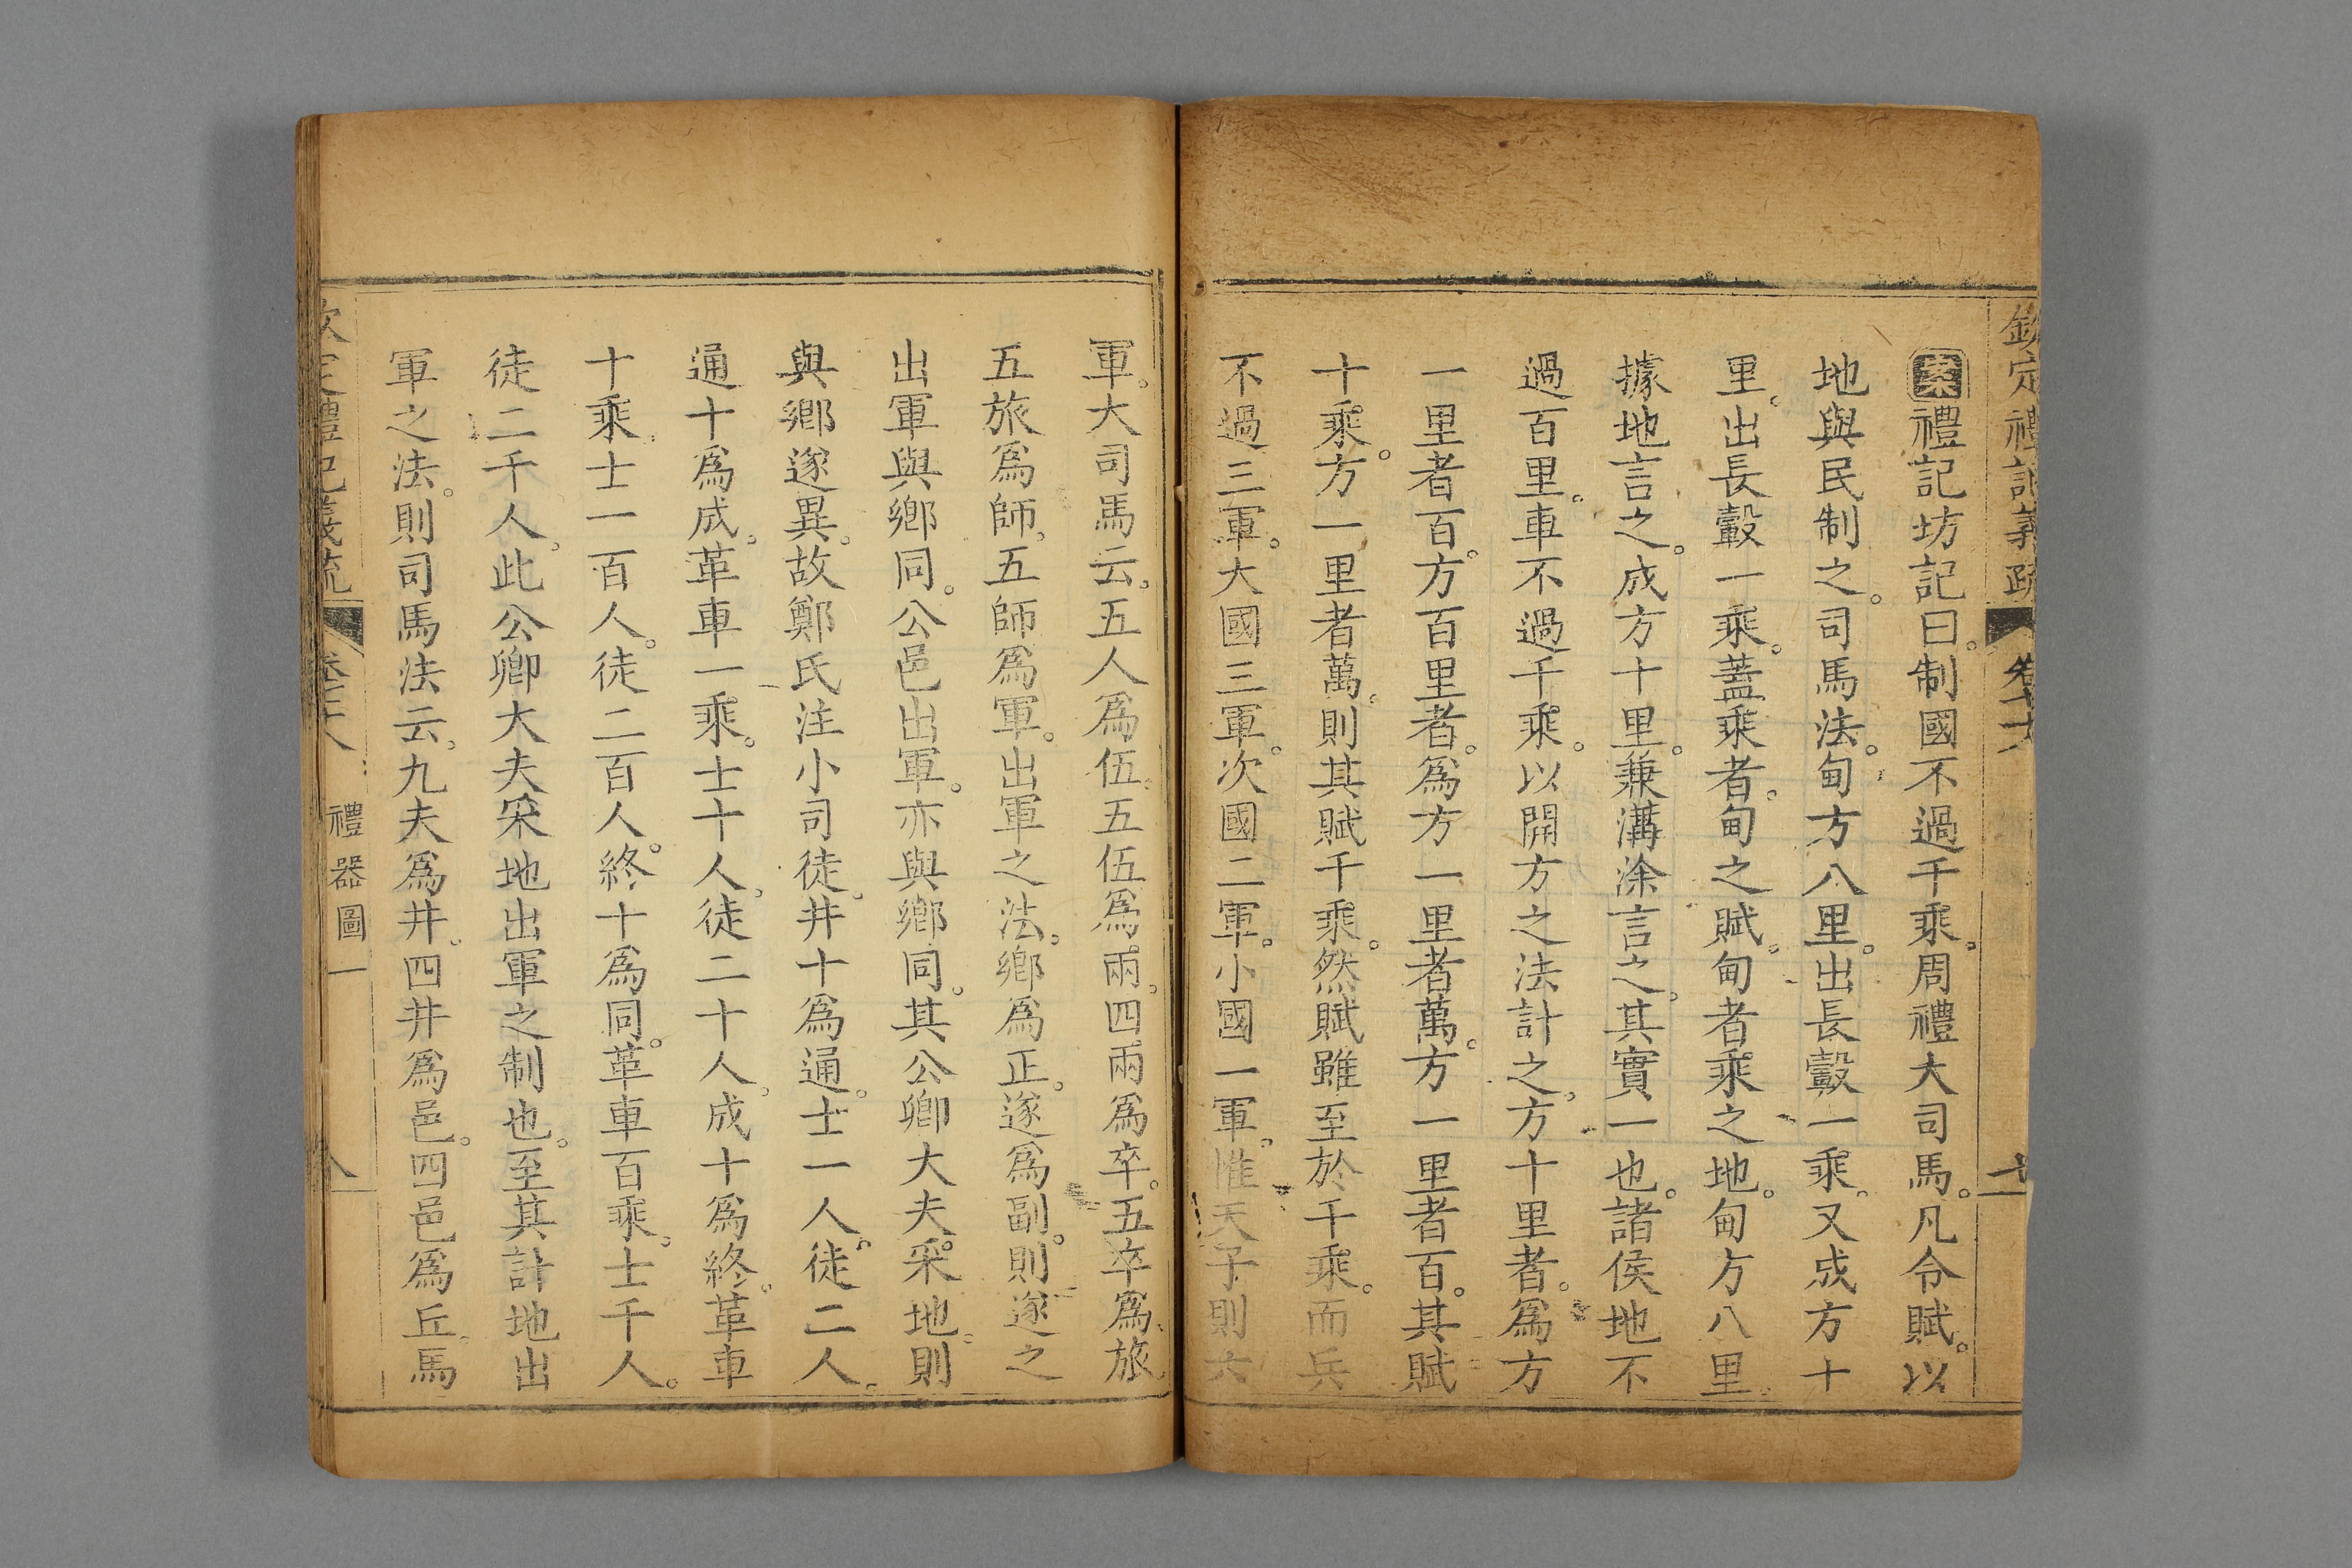 欽定禮記義疏 卷七十八 十一
案禮記坊記曰。制國不過千乘。周禮大司馬。凡令賦。以
地與民制之。司馬法。甸方八里。出長轂一乘。又成方十
里。出長轂一乘。蓋乘者。甸之賦。甸者乘之地。甸方八里。
據地言之。成方十里。兼溝涂言之。其實一也。諸侯地不
過百里。車不過千乘。以開方之法計之。方十里者。爲方
一里者百。方百里者。爲方一里者萬。方一里者百。其賦
十乘。方一里者萬。則其賦千乘。然賦雖至於千乘。而兵
不過三軍。大國三軍。次國二軍。小國一軍。惟天子則六
軍。大司馬云。五人爲伍。五伍爲兩。四兩爲卒。五卒爲旅。
五旅爲師。五師爲軍。出軍之法。鄉爲正。遂爲副。則遂之
出軍與鄉同。公邑出軍。亦與鄉同。其公卿大夫。采地。則
與鄉遂異。故鄭氏注小司徒。井十爲通。士一人。徒二人。
通十爲成。革車一乘。士十人。徒二十人。成十爲終。革車
十乘。士一百人。徒二百人。終十爲同。革車百乘。士千人。
徒二千人。此公卿大夫采地出軍之制也。至其計地出
軍之法。則司馬法云。九夫爲井。四井爲邑。四邑爲丘。馬
欽定禮記義疏 禮器圖一